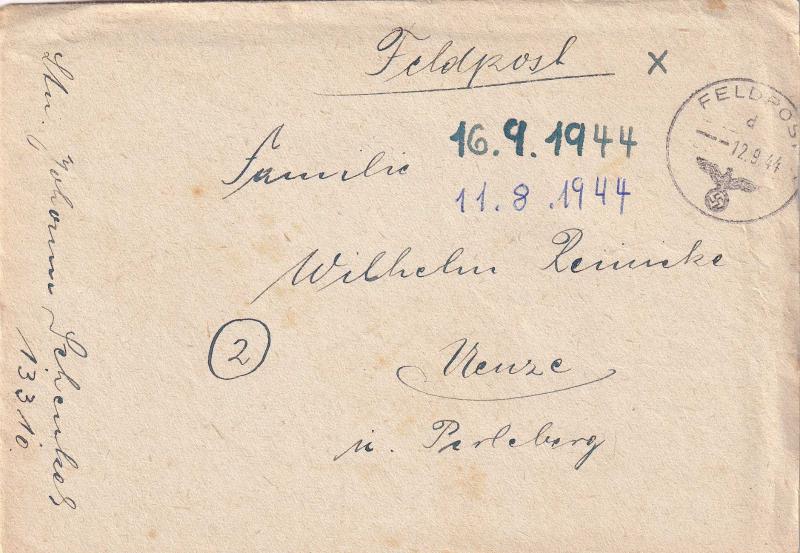 Feldpost x
FELDPOST
d
12.9.44
16.9.1944
Familie
11.8.1944
Wilhelm Reinicke
2
Uenze
ü. Perleberg
Stu. Johann Schenkel
13310